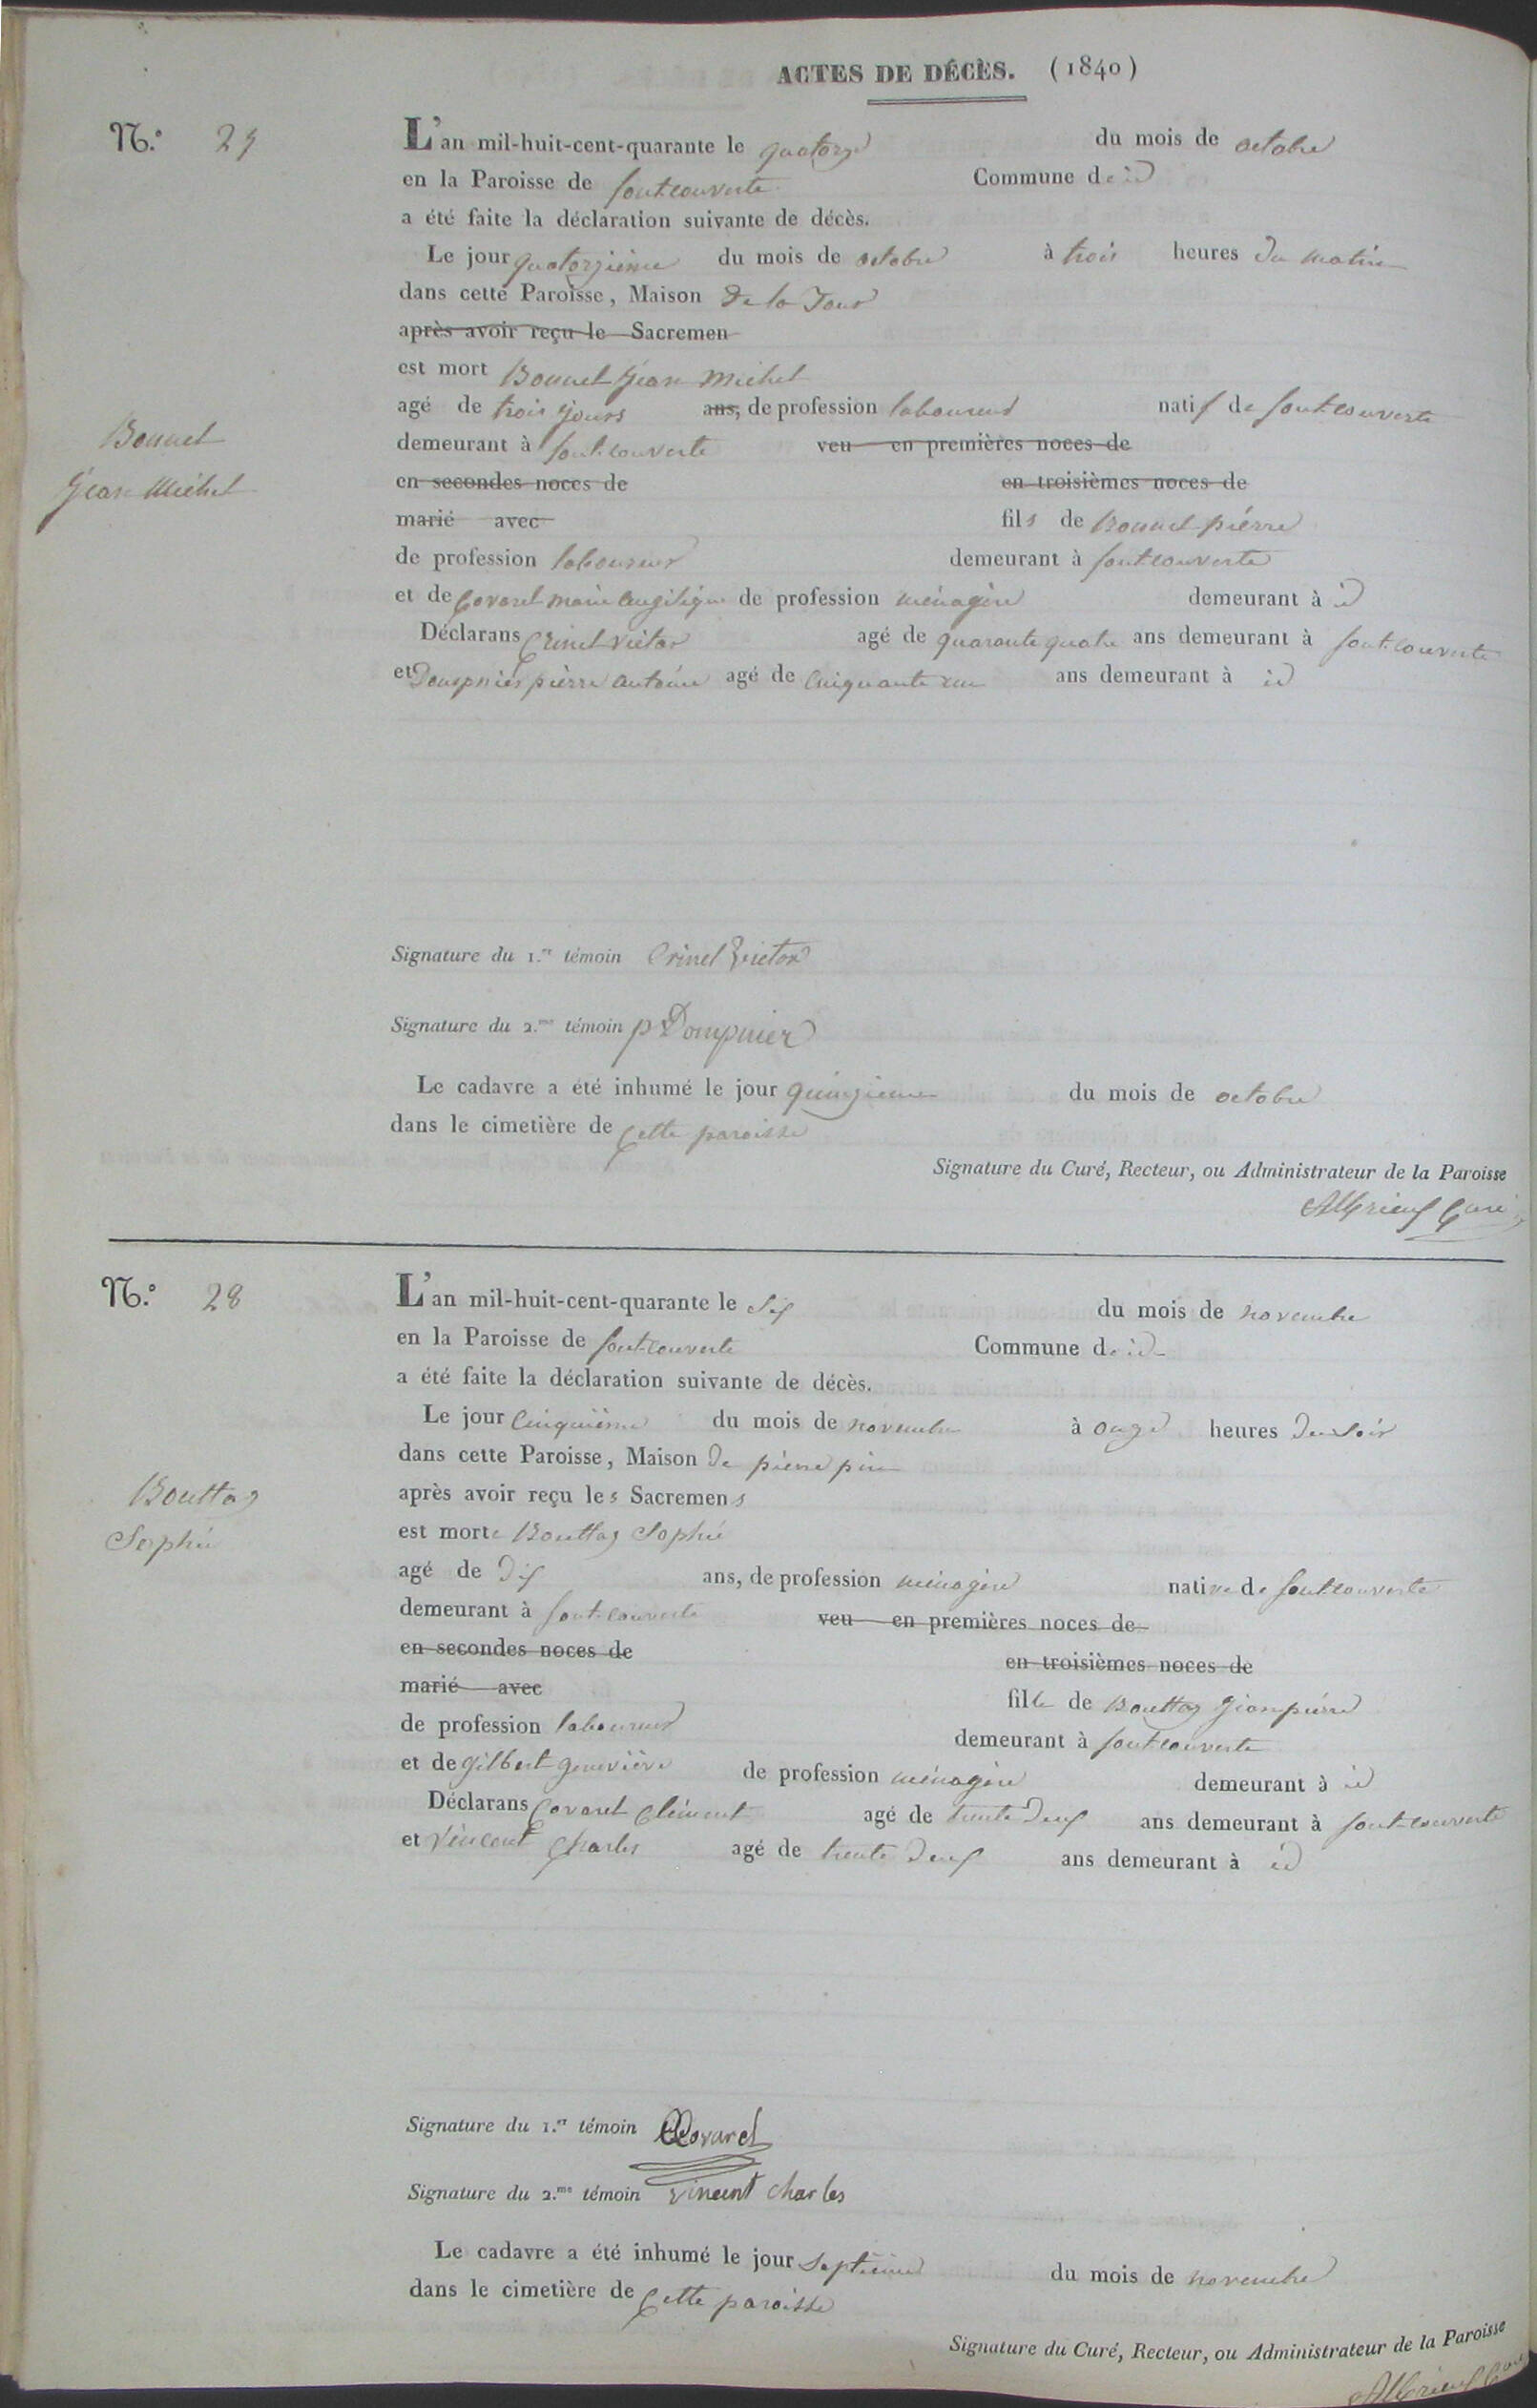 ACTES DE DÉCÈS. (1840)
N.° 27
L'an mil-huit-cent-quarante le quatorze du mois de octobre
en la Paroisse de fontcouverte Commune de id
a été faite la déclaration suivante de décès.
Le jour quatorzième du mois de octobre à trois heures du matin
dans cette Paroisse, Maison De la Tour
après avoir reçu le Sacremen
est mort Bonnel Jean Michel
agé de trois jours ans, de profession laboureur natif de fontcouverte
Bonnel
Jean Michel
demeurant à fontcouverte veu en premières noces de
en secondes noces de en troisièmes noces de
marié avec fils de Bonnel pierre
de profession laboureur demeurant à fontcouverte
et de Covarel marie Angélique de profession ménagère demeurant à id
Déclarans Crinel victor agé de quarante quatre ans demeurant à fontcouverte
et Dompnier pierre antoine agé de Cinquante un ans demeurant à id
Signature du 1.er témoin Crinel Victor
Signature du 2.me témoin p Dompnier
Le cadavre a été inhumé le jour quinzieme du mois de octobre
dans le cimetière de Cette paroisse
Signature du Curé, Recteur, ou Administrateur de la Paroisse
Curé
N.° 28
L'an mil-huit-cent-quarante le Six du mois de novembre
en la Paroisse de fontcouverte Commune de id
a été faite la déclaration suivante de décès.
Le jour Cinquième du mois de novembre à onze heures du soir
dans cette Paroisse, Maison De pierre pin
après avoir reçu les Sacremens
Bouttaz
Sophie
est morte Bouttaz Sophie
agé de Dix ans, de profession ménagère native de fontcouverte
demeurant à fontcouverte veu en premières noces de
en secondes noces de en troisièmes noces de
marié avec fille de Bouttaz Jean pierre
de profession laboureur demeurant à fontcouverte
et de gilbert geneviève de profession ménagère demeurant à id
Déclarans Covarel Clément agé de trente Deux ans demeurant à fontcouverte
et Vincent Charles agé de trente Deux ans demeurant à id
Signature du 1.er témoin Covarel
Signature du 2.me témoin vincent charles
Le cadavre a été inhumé le jour Septième du mois de novembre
dans le cimetière de Cette paroisse
Signature du Curé, Recteur, ou Administrateur de la Paroisse